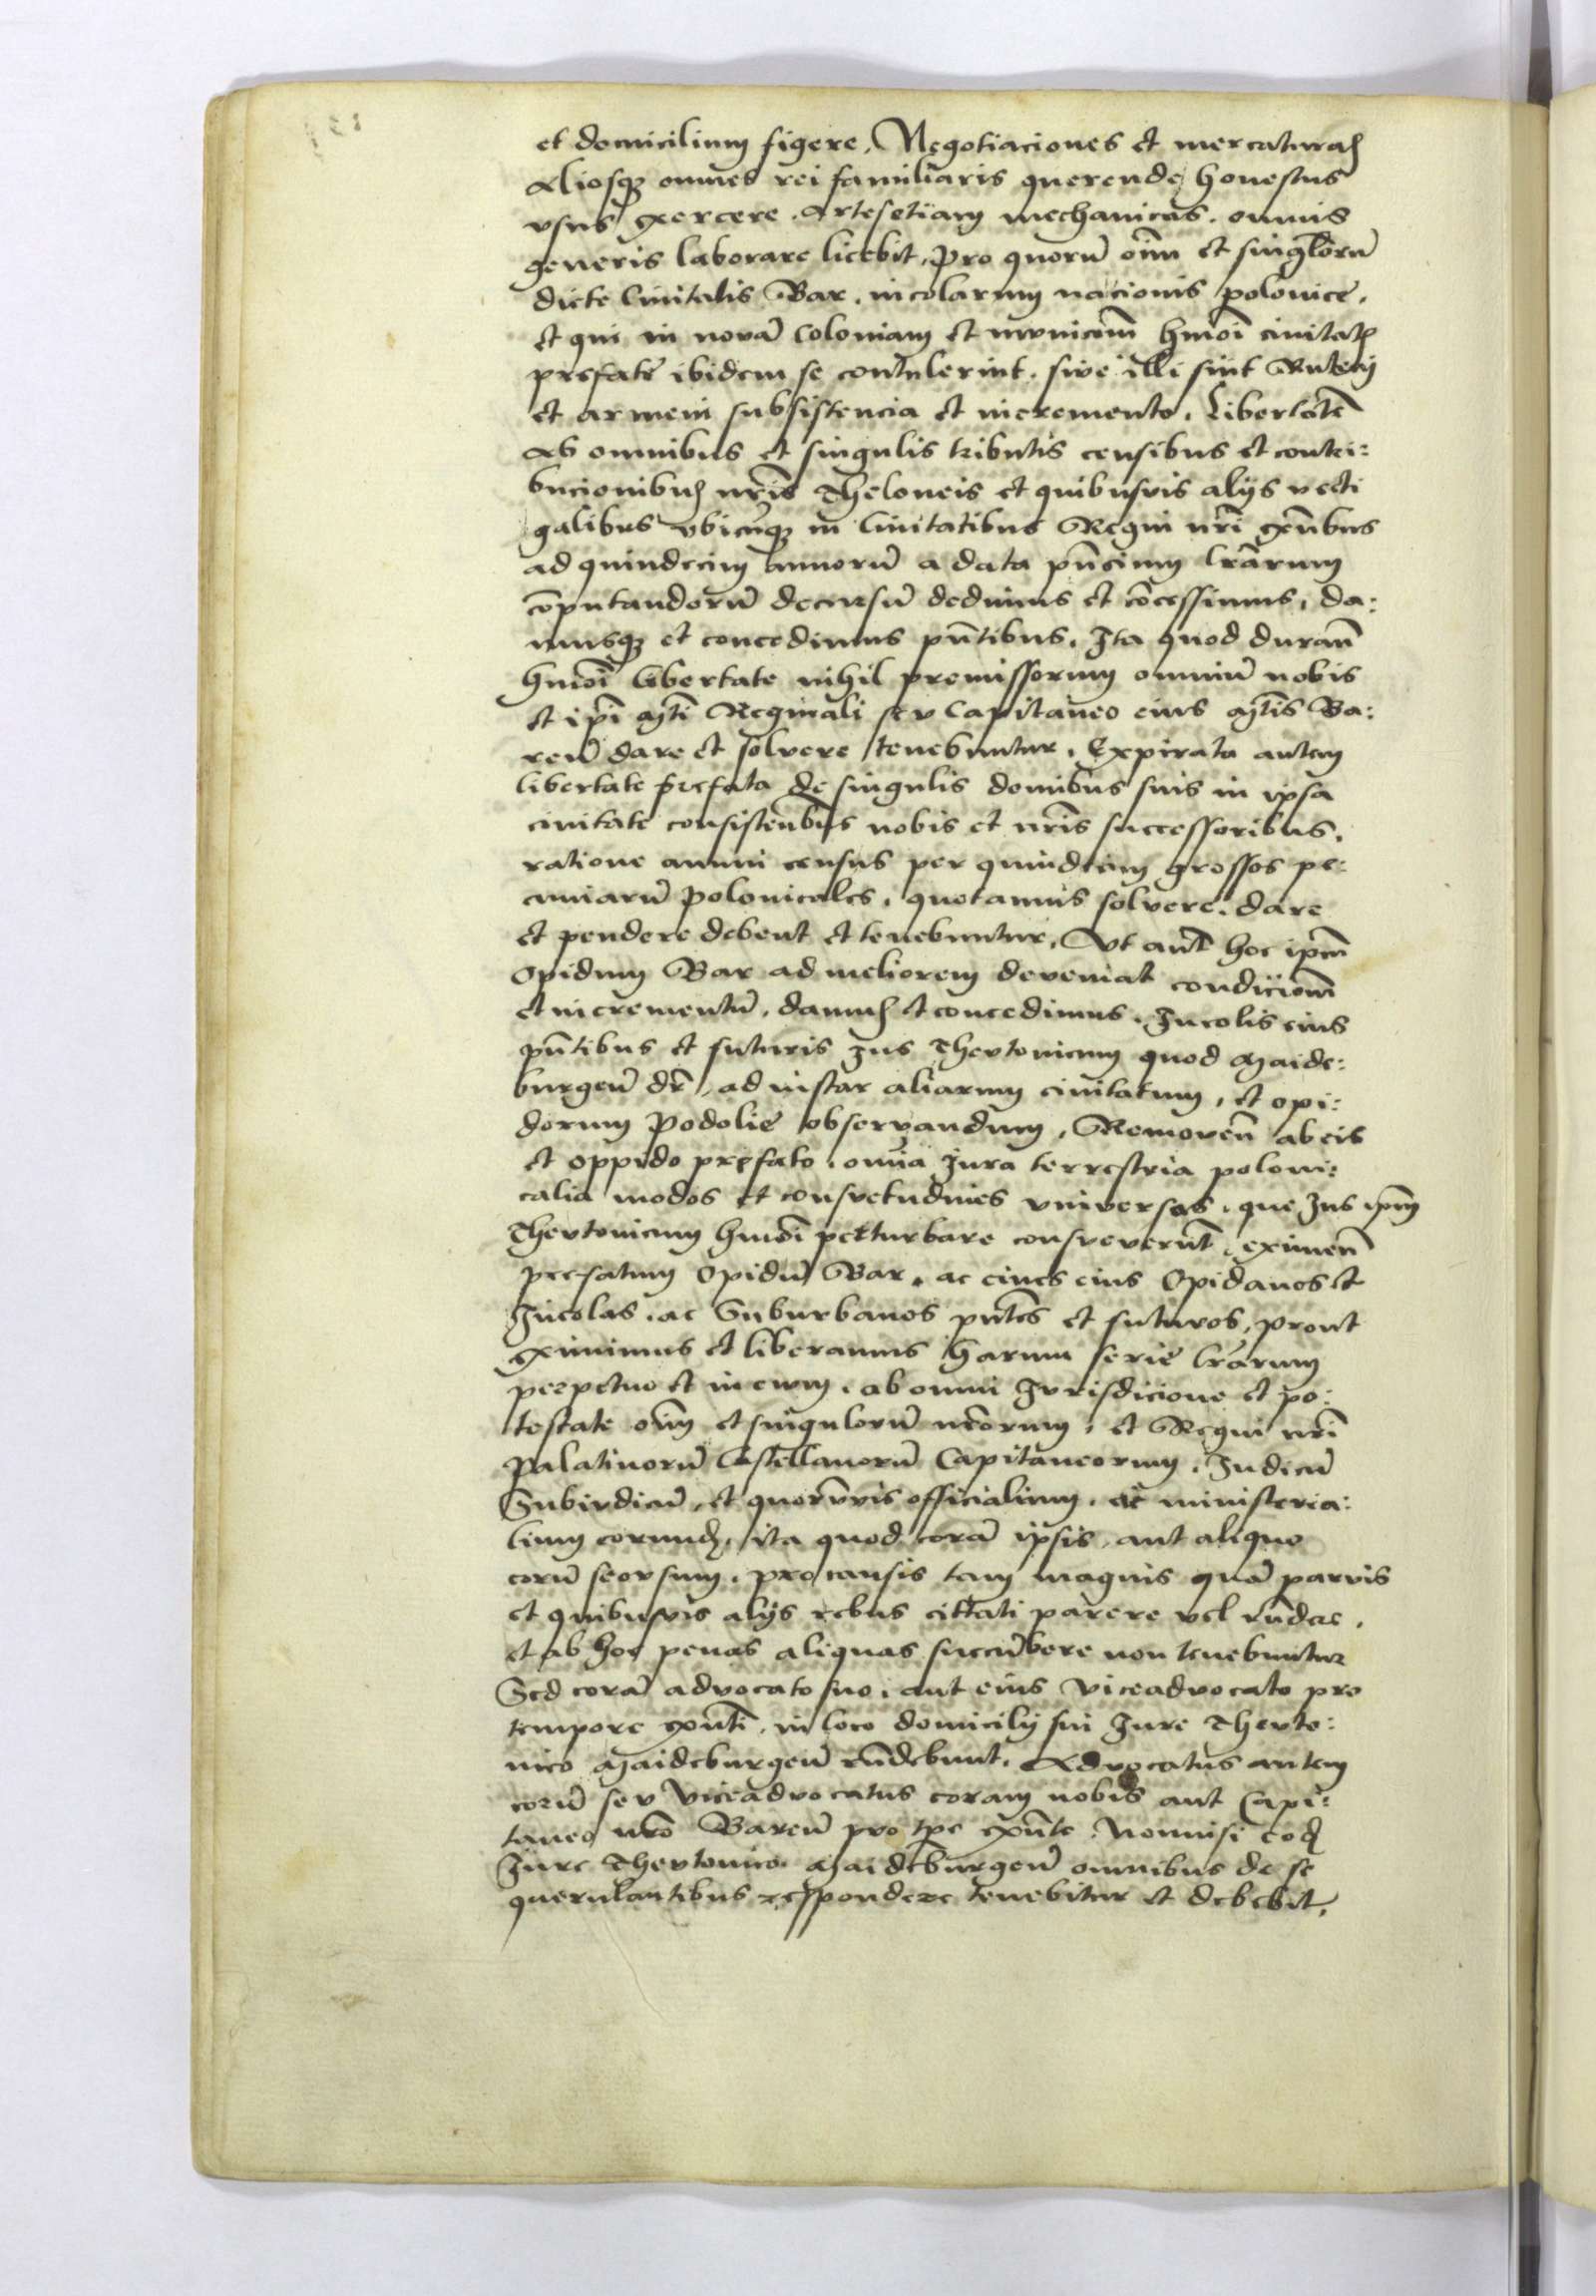 et domicilium figere, Negotiaciones et mercaturas
Aliosq₃ omnes rei familiaris querende honestus
vsus exercere. Artesetiam mechanicas. omnis
generis laborare licebit, Pro quorū oīm et singlorū
dicte Ciuitatis Bar. incolarum nacionis polonice.
et qui in novā Coloniam et hmōi ciuitatis
prefate ibidem se contulerint. sive illi sint Ruteni
et armeni subsistencia et incremento. Libertatē
Ab omnibus et singulis tributis censibus et contri:
bucionibus nrīs Theloneis et quibusvis alijs vecti
galibus vbicūq₃ in Ciuitatibus Regni nrī exn̄tibus
ad quindecim annorū a data pn̄cium lrārum
cōputandorū decursū dedimus et cōcessimus, da:
musq₃ et concedimus pn̄tibus. Ita quod durañ
hmōi libertate nihil premissorum omniū nobis
et ipī Mtī Reginali seu Capitaneo eius Mtīs Ba:
reñ dare et solvere tenebuntur. Expirata autem
libertate prefata de singulis domibus suis in ipsa
ciuitate consisten̄bus nobis et nrīs successoribus.
ratione annui census per quindecim grossos pe:
cuniarū polonicales. quotannis solvere. dare
et pendere debent et tenebuntur. Vt aūt hoc ipm̄
Opidum Bar ad meliorem deveniat condicionē
et incrementū. damus et concedimus. Incolis eius
pn̄tibus et futuris Jus Thevtonicum quod Maide:
burgeñ dr̄, ad instar aliarum ciuitatum, et opi:
dorum Podolie observandum, Removeñ ab eis
et oppido prefato. omnīa Jura terrestria poloni:
calia modos et consvetudines vniversas, que Jus ipm̄
Thevtonicum hmōi perturbare consveverūt. eximeñ
prefatum Opidū Bar. ac ciues eius Opidanos et
Incolas. ac Suburbanos pn̄tes et futuros, prout
eximimus et liberamus harum serie lrārum
perpetuo et in evum. ab omni Jurisdicione et po:
testate oīm et singulorū nrōrum, et Regni nrī
Palatinorū Castellanorū Capitaneorum. Judicū
Subiudicū, et quorūvis officialium. ac ministeria:
lium eorund. ita quod corā ipsis, aut aliquo
eorū seorsum. pro causis tam magnis quā parvis
et quibusvis alijs rebus cittati parere vel rn̄dere.
et ab hoc penas aliquas succūbere non tenebuntur
Sed corā advocato suo. aut eius viceadvocato pro
tempore exn̄ti. in loco domicilij sui Jure Thevto:
nico Maideburgeñ rn̄debunt. Advocatus autem
eorū seu viceadvocatus coram nobis aut Capi:
taneo nrō Bareñ pro tpe exn̄te. Nonnisi eod
Jure Thevtonico Maideburgeñ omnibus de se
querulantibus respondere tenebitur et debebit.